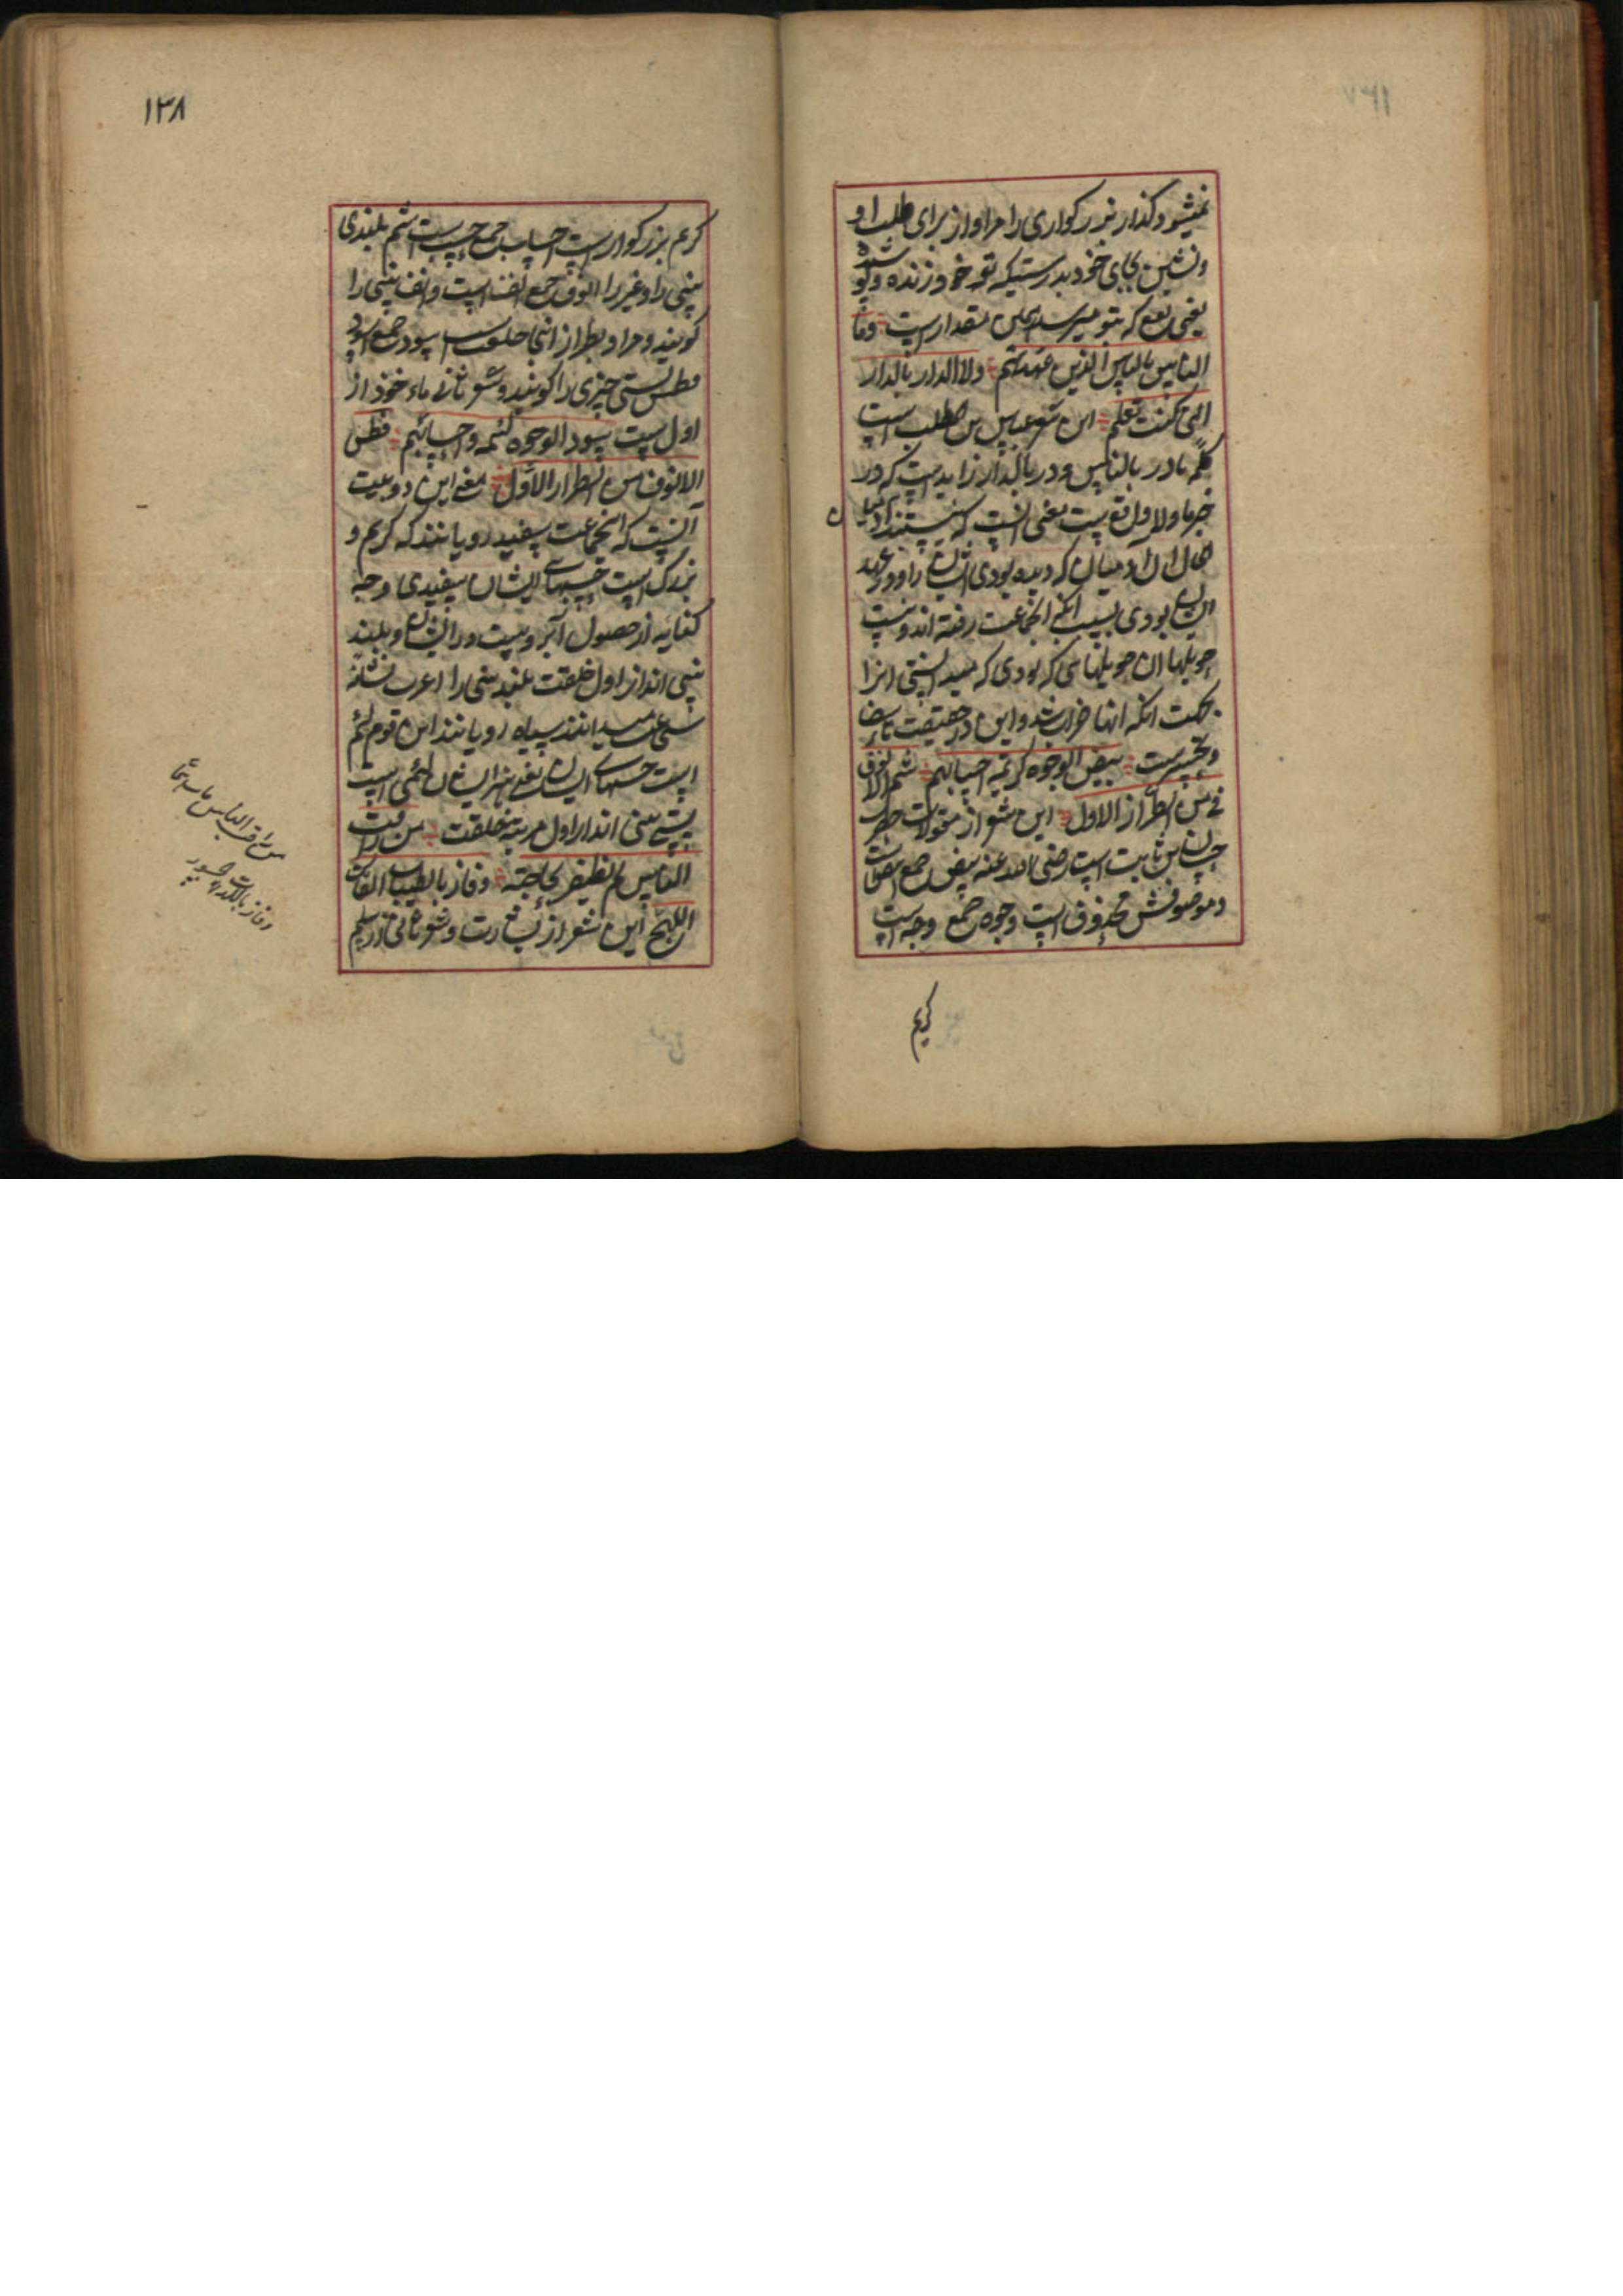 نمیشود کذار بزرکواری را مر او از برای طلب او
و نشین بجای خود بدرستیکه تو خود زنده و
یعنی نفع که بتو میرسد همین مقدار است وما
الناس بالناس الذین عهدتهم ولا الدار بالدار
التی کنت تعلم این شعر عباس بن مطلب است
کلمه با در بالناس و در بالدار زاید است که در
خبر ما ولا واقع است معنی انست که نیستند آدمیان
الحال ان آدمیان که دیده بودی ایشان را و در عهد
ایشان بودی بسبب انکه انجماعت رفته اند و نیست
حویلها ان حویلهائی که بودی که میدانستی انرا
بجهت انکه انها خراب شد و این در حقیقت تاسف
و تحسر است بیض الوجوه کریمة احسابهم شم الانوف
من الطراز الاول این شعر از مقولات حضرت
حسان بن ثابت است رضی الله عنه بیض جمع
و موصوفش محذوف است وجوه جمع وجه است
کریم
۱۳۸
کریم بزرکوار است احساب جمع حسب است شم بلندی
بینی را و غیر را انوف جمع انف است و انف بینی را
کویند و مراد بطراز اینجا خلقت است سود جمع اسود
فطس پستی چیزی را کویند و شعر ثانی ماخوذ از
اول است سود الوجوه لئیمة احسابهم فطس
الانوف من الطراز الاول معنی این دو بیت
آنست که انجماعت سفید رویانند که کریم و
بزرک است حسبهای ایشان سفیدی وجه
کنایه از حصول آبرو است در ایشان و بلند
بینی اند از اول خلقت بلند بینی را اعرب نشانه
شجاعت میدانند سیاه رویانند این قوم لئیم
است حسبهای ایشان یعنی هنر ایشان لئیمی است
پست بینی اند از اول مرتبه خلقت من راقب
الناس لم یظفر بحاجته وفاز بالطیبات الفاتک
اللهج این شعر از بشار است و شعر ثانی از سلم
من راقب الناس مات غما
وفاز باللذة الجسور